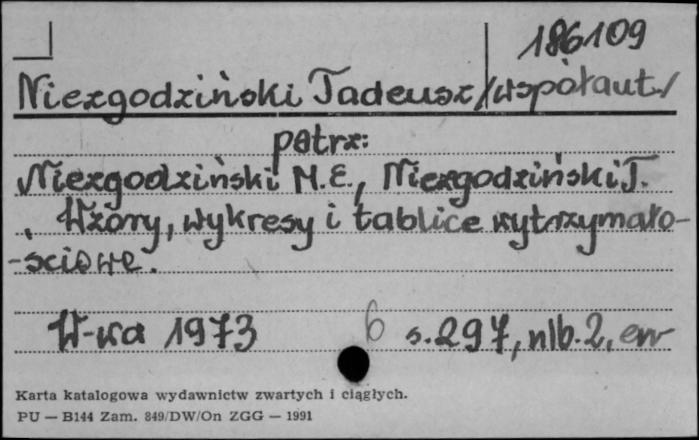 186109
Niezgodziński Tadeusz /współaut./
patrz:
Niezgodziński M.E., Niezgodziński T.
, Wzory, wykresy i tablice wytrzymało-
-ściowe.
W-wa 1973 6 s. 297, nlb. 2, err
Karta katalogowa wydawnictw zwartych i ciągłych.
PU — B144 Zam. 849/DW/On ZGG — 1991